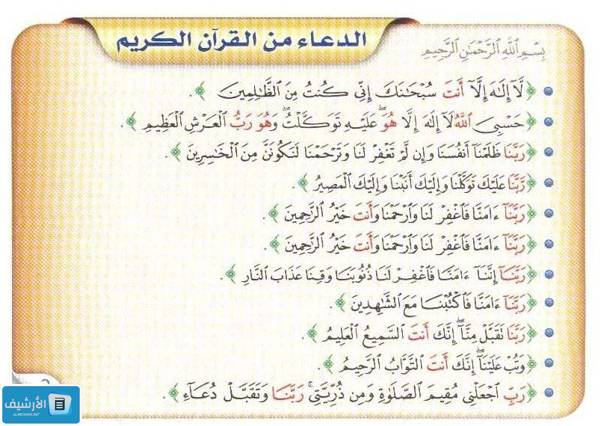 الدعاء من القرآن الكريم
بِسْمِ ٱللَّهِ ٱلرَّحْمَٰنِ ٱلرَّحِيمِ
﴿لَّآ إِلَٰهَ إِلَّآ أَنتَ سُبْحَٰنَكَ إِنِّى كُنتُ مِنَ ٱلظَّٰلِمِينَ﴾.
﴿حَسْبِىَ ٱللَّهُ لَآ إِلَٰهَ إِلَّا هُوَ ۖ عَلَيْهِ تَوَكَّلْتُ ۖ وَهُوَ رَبُّ ٱلْعَرْشِ ٱلْعَظِيمِ﴾.
﴿رَبَّنَا ظَلَمْنَآ أَنفُسَنَا وَإِن لَّمْ تَغْفِرْ لَنَا وَتَرْحَمْنَا لَنَكُونَنَّ مِنَ ٱلْخَٰسِرِينَ﴾.
﴿رَّبَّنَا عَلَيْكَ تَوَكَّلْنَا وَإِلَيْكَ أَنَبْنَا وَإِلَيْكَ ٱلْمَصِيرُ﴾.
﴿رَبَّنَآ ءَامَنَّا فَٱغْفِرْ لَنَا وَٱرْحَمْنَا وَأَنتَ خَيْرُ ٱلرَّٰحِمِينَ﴾.
﴿رَبَّنَآ ءَامَنَّا فَٱغْفِرْ لَنَا وَٱرْحَمْنَا وَأَنتَ خَيْرُ ٱلرَّٰحِمِينَ﴾.
﴿رَبَّنَآ إِنَّنَآ ءَامَنَّا فَٱغْفِرْ لَنَا ذُنُوبَنَا وَقِنَا عَذَابَ ٱلنَّارِ﴾.
﴿رَبَّنَآ ءَامَنَّا فَٱكْتُبْنَا مَعَ ٱلشَّٰهِدِينَ﴾.
﴿رَبَّنَا تَقَبَّلْ مِنَّآ ۖ إِنَّكَ أَنتَ ٱلسَّمِيعُ ٱلْعَلِيمُ﴾.
﴿وَتُبْ عَلَيْنَآ ۖ إِنَّكَ أَنتَ ٱلتَّوَّابُ ٱلرَّحِيمُ﴾.
﴿رَبِّ ٱجْعَلْنِى مُقِيمَ ٱلصَّلَوٰةِ وَمِن ذُرِّيَّتِى ۚ رَبَّنَا وَتَقَبَّلْ دُعَآءِ﴾.
الأرشيف